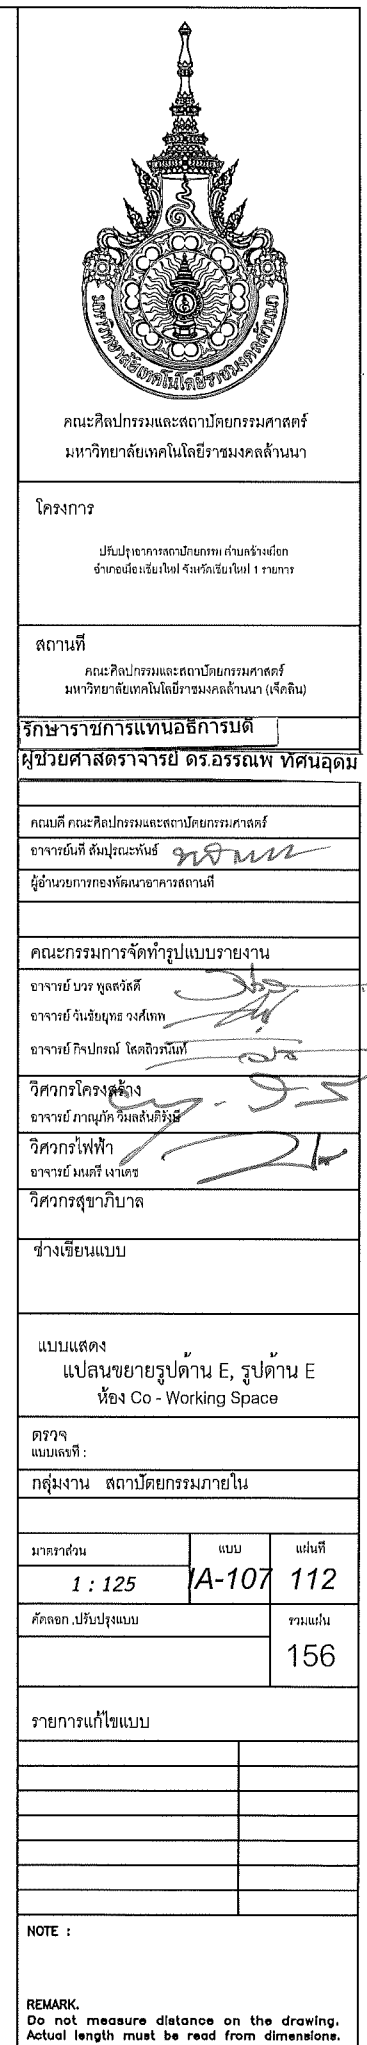 มหาวิทยาลัยเทคโนโลยีราชมงคลล้านนา
คณะศิลปกรรมและสถาปัตยกรรมศาสตร์
มหาวิทยาลัยเทคโนโลยีราชมงคลล้านนา
โครงการ
ปรับปรุงอาคารสถาปัตยกรรม ตำบลช้างเผือก
อำเภอเมืองเชียงใหม่ จังหวัดเชียงใหม่ 1 รายการ
สถานที่
คณะศิลปกรรมและสถาปัตยกรรมศาสตร์
มหาวิทยาลัยเทคโนโลยีราชมงคลล้านนา (เจ็ดลิน)
รักษาราชการแทนอธิการบดี
ผู้ช่วยศาสตราจารย์ ดร.อรรณพ ทัศนอุดม
คณบดี คณะศิลปกรรมและสถาปัตยกรรมศาสตร์
อาจารย์นที สัมปุรณะพันธ์
ผู้อำนวยการกองพัฒนาอาคารสถานที่
คณะกรรมการจัดทำรูปแบบรายงาน
อาจารย์ บวร พูลสวัสดิ์
อาจารย์ วันชัยยุทธ วงศ์เทพ
อาจารย์ กิจปกรณ์ โสตถิวรนันท์
วิศวกรโครงสร้าง
อาจารย์ ภาณุภัค วิมลสันติรังษี
วิศวกรไฟฟ้า
อาจารย์ มนตรี เงาเดช
วิศวกรสุขาภิบาล
ช่างเขียนแบบ
แบบแสดง
แปลนขยายรูปด้าน E, รูปด้าน E
ห้อง Co - Working Space
ตรวจ
แบบเลขที่ :
กลุ่มงาน สถาปัตยกรรมภายใน
มาตราส่วน แบบ แผ่นที่
1 : 125 IA-107 112
คัดลอก ,ปรับปรุงแบบ รวมแผ่น
156
รายการแก้ไขแบบ
NOTE :
REMARK.
Do not measure distance on the drawing.
Actual length must be read from dimensions.